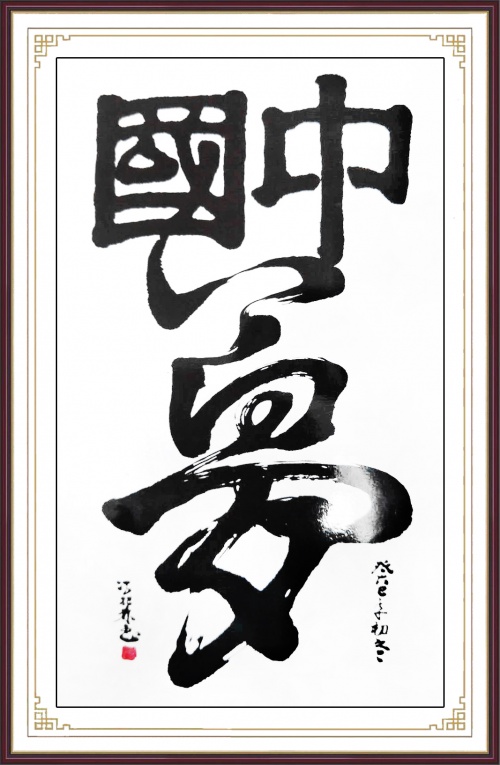 中國夢
癸巳年初冬